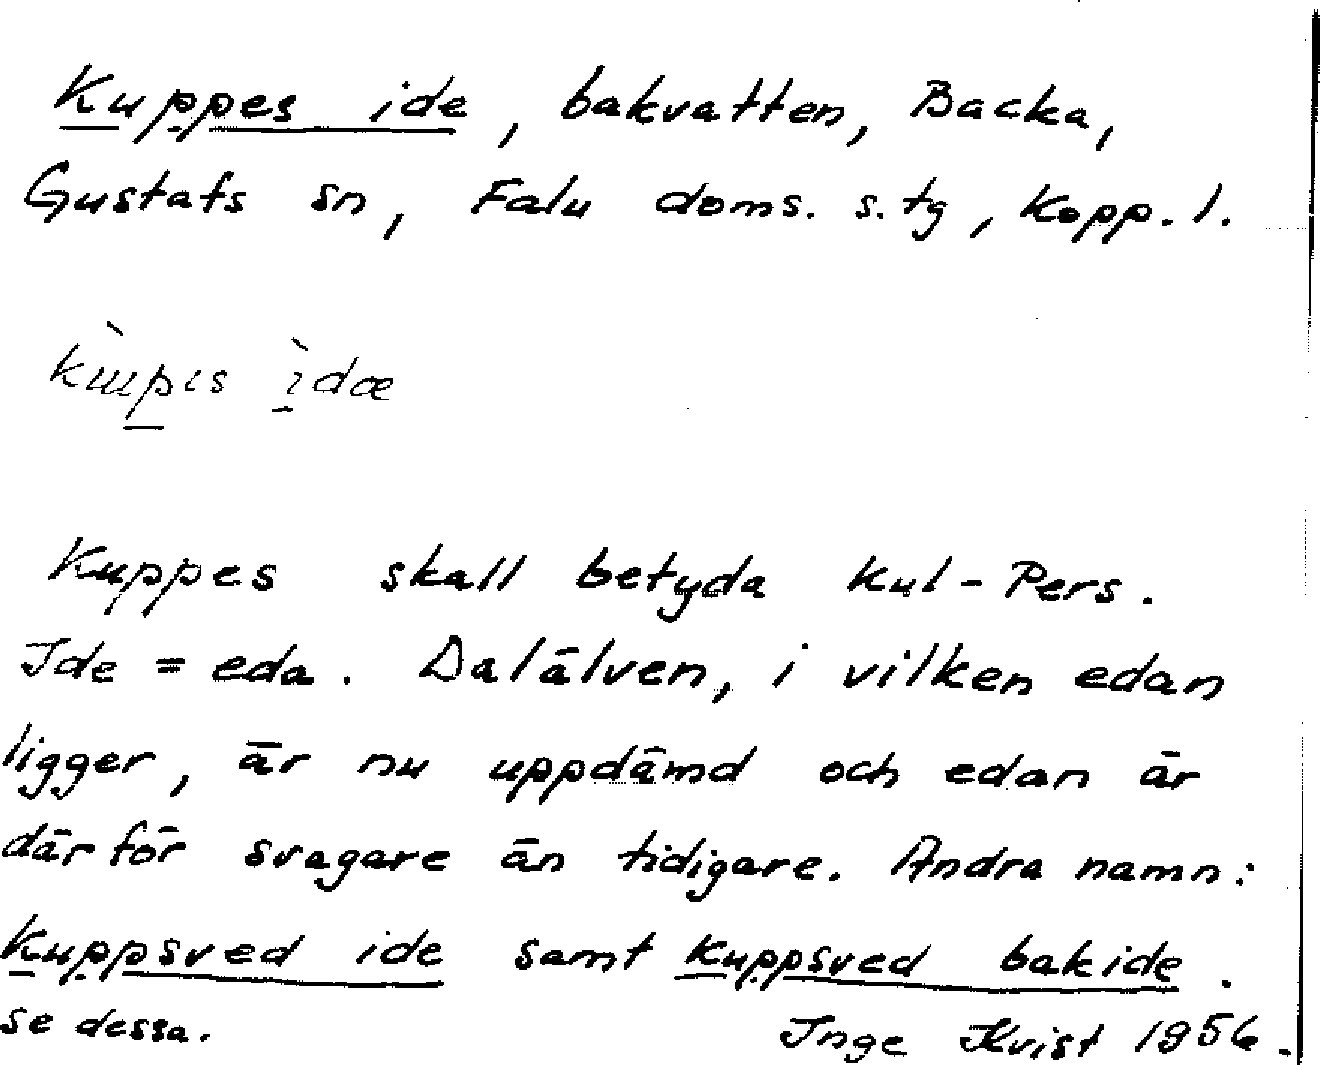 Kuppes ide, bakvatten, Backa,
Gustafs sn, Falu doms. s. tg, Kopp. l.
Kuppes skall betyda Kul-Pers.
Ide = eda. Dalälven, i vilken edan
ligger, är nu uppdämd och edan är
därför svagare än tidigare. Andra namn:
Kuppsved ide samt Kuppsved bakide.
se dessa.
Inge Kvist 1956.